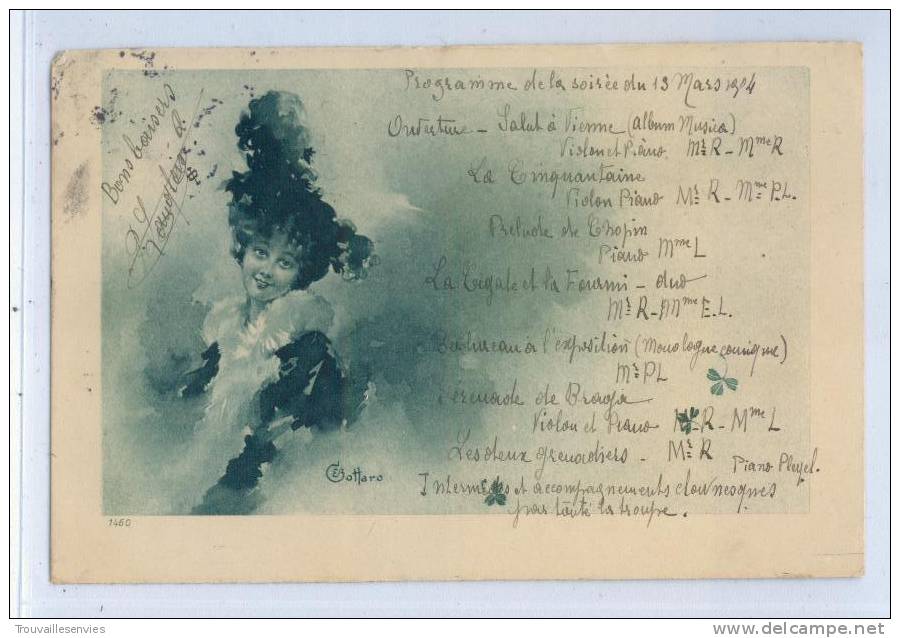 Programme de la soirée du 13 Mars 1904
Ouverture - Salut à Vienne (album Musica)
Violon et Piano Mr R - Mme R
La Cinquantaine
Violon Piano Mr R - Mme P.L.
Prelude de Chopin
Piano Mme L
La Cigale et la Fourmi - duo
Mr R - Mme E.L.
à l'exposition (Monologue comique)
Mr PL
Sérénade de Braga
Violon et Piano Mr R - Mme L
Les deux grenadiers - Mr R
Piano Pleyel.
Intermèdes et accompagnements clownesques
par toute la troupe.
Bons baisers
E Bottaro
1460
Trouvaillesenvies
www.delcampe.net